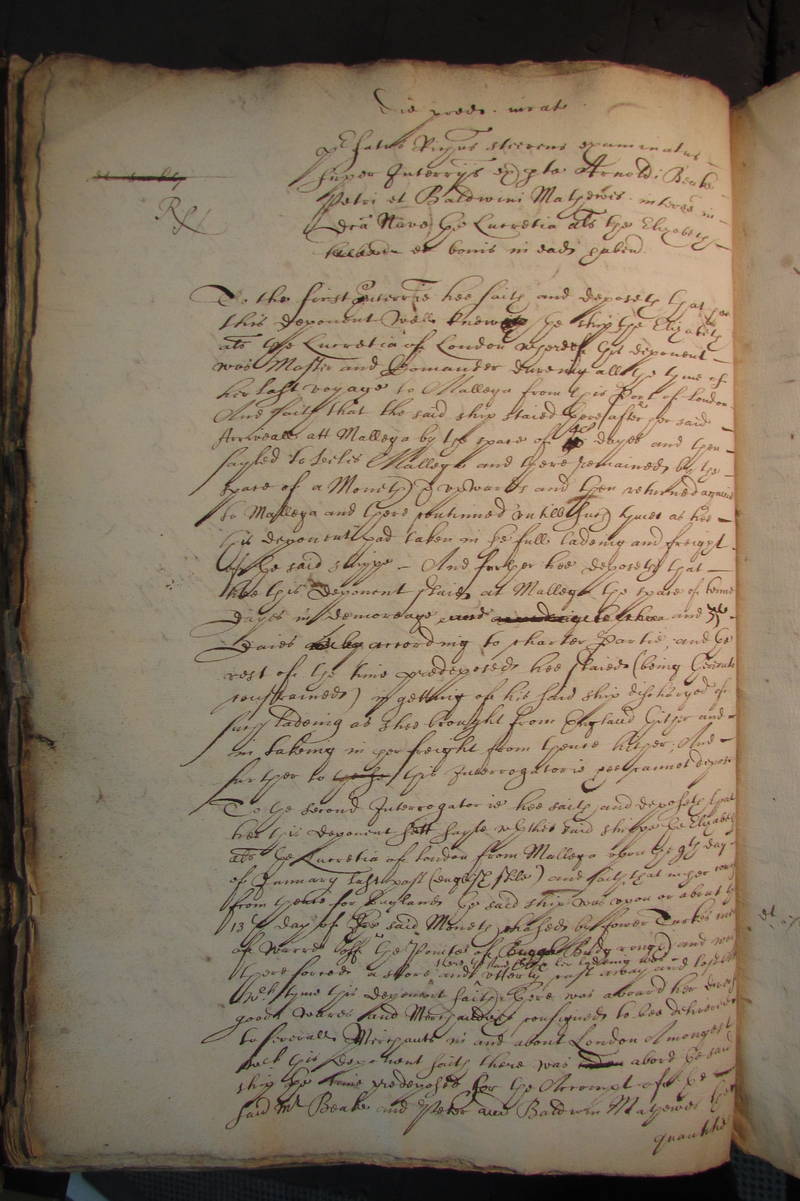 die pred. jurat
super Interrijs ex pte Arnoldi Beake
Petri et Baldwini Mathewes interee in
Nave the Lucretia als the Elizabeth
et bonis in ead
Rs 1
To the first Interrie hee saith and deposeth that
this deponent well knew the ship the Elizabeth
als the Lucretia of London this deponent
was Master and Comander dureing all the tyme of
her last voyage to Mallega from this Port of London
And saith that the said ship staied there after her said
Arriveall att Mallega by the space of dayes and then
sayled to Mallega and there remained by the
space of a Moneth & upwards and then returned againe
to Mallega and there continued untill such tyme as hee
this deponent had taken in the full ladeing and freight
of the said shippe - And further hee deposeth that
hee this deponent staied at Mallega the space of tenne
dayes in demorage and and
daies according to charter Partie, and the
rest of the time predeposed hee staied (being
constrained) in getting of his said ship discharged of
such ladeing as shee brought from England thither and
in takeing in her freight from thence hither, And
further to this Interrogatorie hee cannot depose
To the second Interrogatorie hee saith and deposeth that
hee this deponent sett sayle with the said shippe the Elizabeth
als the Lucretia of London from Mallega upon the 9th day
of January last past (english stile) and saith that in her way
from thence for England the said ship was upon or about the
13th day of the said Moneth chased by fower Turkes men
of Warre off the Pointes of and was
there forced a shore and cast away and lost
tyme this deponent saith there was aboard her divers
goods wares and Merchandizes consigned to bee delivered
to severall Merchants in and about London Amongst
which this deponent saith there was abord the said
ship the time predeposed for the Accompt of the
said Mr Beake and Peter and Baldwin Mathewes the
quantitie